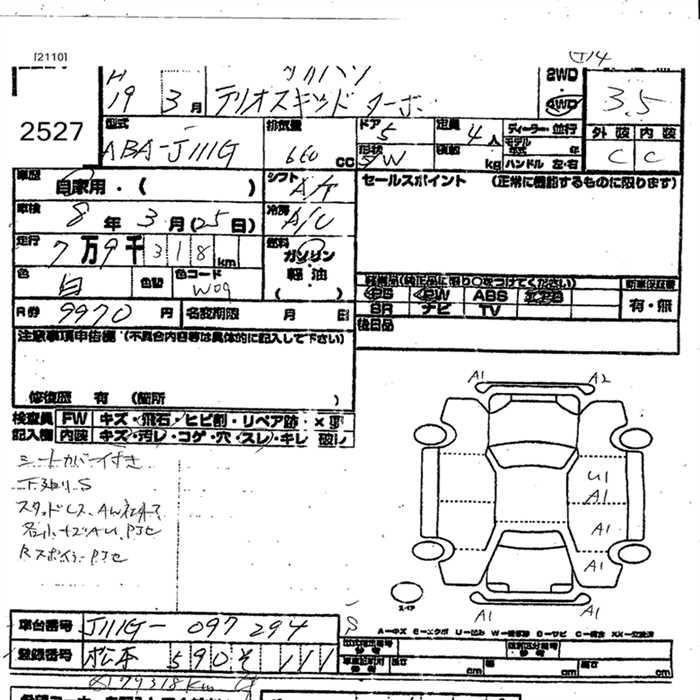 [2110]
H 19 3月
テリオスキッド ターボ
2WD・4WD
3.5
2527
型式 ABA-J111G
排気量 660 CC
ドア 5
形状 W
定員 4人
積載 kg
ディーラー・並行
モデル年式 年
ハンドル 左・右
外装 内装
C C
車歴 自家用・( )
シフト A/T
セールスポイント (正常に機能するものに限ります)
車検 8年3月(25日)
冷房 A/C
走行 7万9千318km
燃料 ガソリン 軽油 ( )
色 白
色替
色コード W09
装備品(純正品に限り○をつけてください)
新車保証書
PS PW ABS エアB
有・無
SR ナビ TV
R券 9970円
名変期限 月 日
後日品
注意事項申告欄(不具合内容等は具体的に記入して下さい)
修復歴 有 (箇所 )
検査員 FW キズ・飛石・ヒビ割・リペア跡・×要
記入欄 内装 キズ・汚レ・コゲ・穴・スレ・キレ 破レ
シートカバー付き
下廻りS
A1 A2
U1
A1
A1
A1
A1 A1
スペア
S
A-キズ E-エクボ U-凹み W-補修跡 S-サビ C-腐食 XX-交換済
車台番号 J111G-097294
登録番号 松本 590 そ 111
79318km